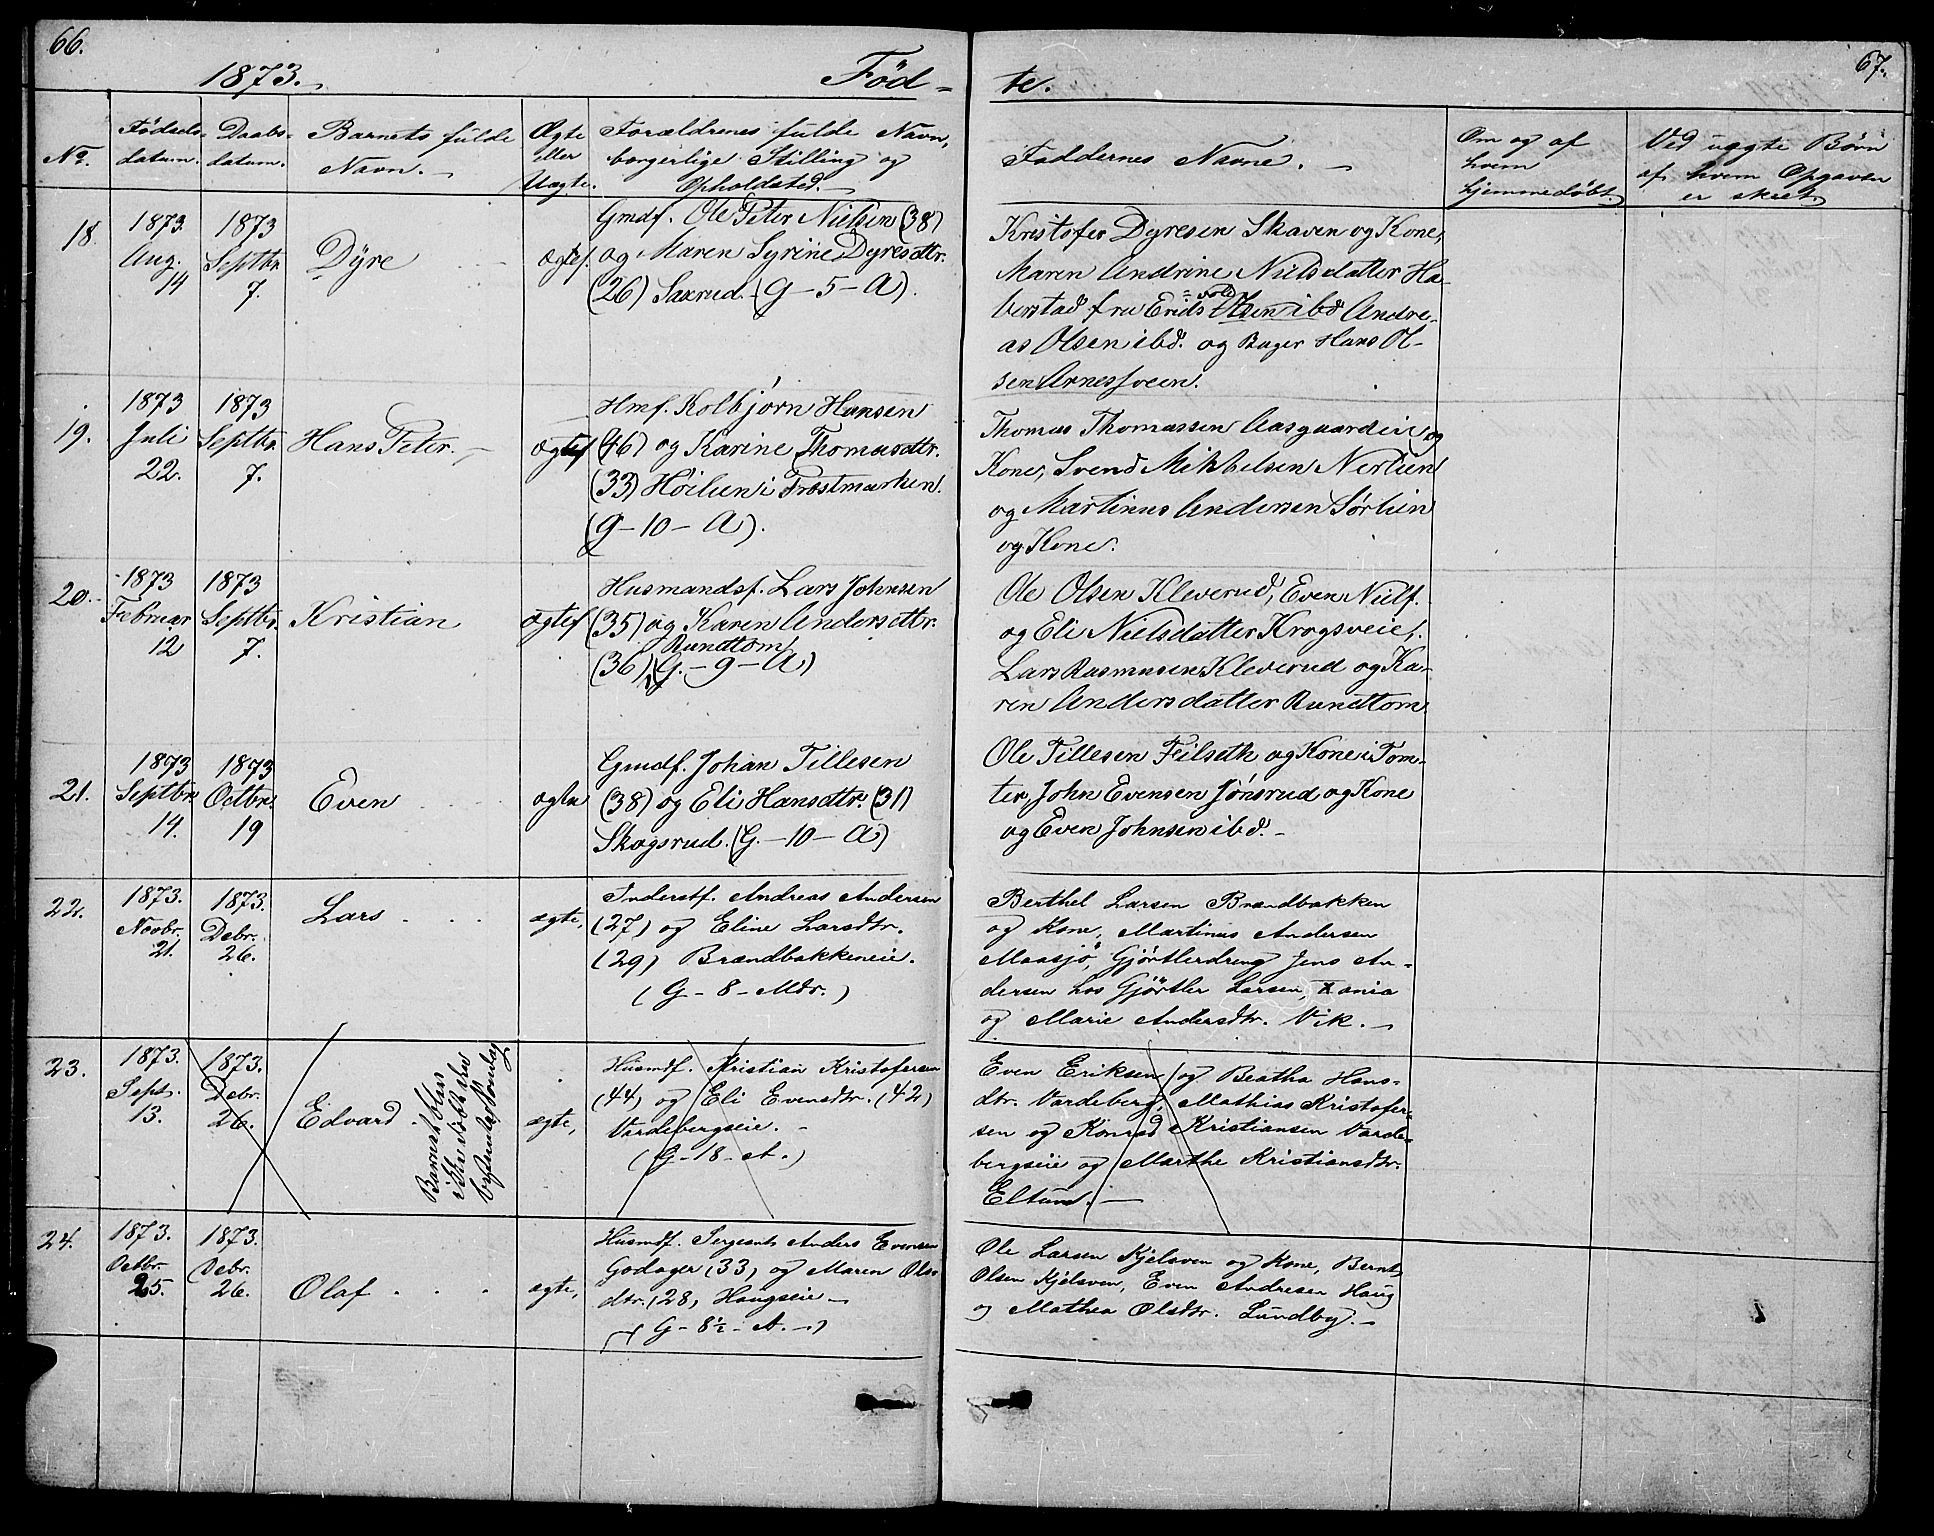 66.
1873.
Fød-
te.
67.
No.
Fødsels-
datum.
Daabs-
datum.
Barnets fulde
Navn.
Ægte
eller
Uægte.
Forældrenes fulde Navn,
borgerlige Stilling og
Opholdsted.
Faddernes Navne.
Om og af
hvem
hjemmedøbt.
Ved uægte Børn
af hvem Opgaven
er skeet.
18.
1873.
Aug.
14
1873
Septbr.
7.
Dÿre
ægtef.
Gmdf. Ole Peter Nielsen (38)
og Maren Syrine Dyresdttr.
(26) Saxrud. (G - 5 - A).
Kristofer Dyresen Skaven og Kone,
Maren Andrine Nielsdatter Ha-
berstad fru Olsen ibd Andre-
as Olsen ibd. og Bager Hans Ol-
sen Arnesveen.
19.
1873
Juli
22.
1873
Septbr.
7.
Hans Peter.
ægtef
Hmf. Kolbjørn Hansen
(46) og Karine Thomasdttr.
(33) Høilien i Frostmarken.
(G - 10 - A).
Thomas Thomassen Aasgaardeie og
Kone, Svend Mikkelsen Nerlien
og Martinus Andersen Sørlien
og Kone.
20.
1873
Februar
12
1873
Septbr.
7.
Kristian
ægtef
Husmandsf. Lars Johnsen
(35) og Karen Andersdttr.
Rundtom
(36) (G. - 9 - A)
Ole Olsen Kleverud, Even Nielf.
og Eli Nielsdatter Krogsveief.
Lars Rasmusen Kleverud og Ka-
ren Andersdatter Rundtom
21.
1873
Septbr
14.
1873
Octbr.
19
Even
Gmdf. Johan Tillesen
(38) og Eli Hansdttr. (31)
Skogsrud. (G. - 10 - A)
Ole Tillesen Feilseth og Kone i Tom-
ter, John Evensen Jönsrud og Kone
og Even Johnsen ibd.
22.
1873.
Novbr.
21.
1873.
Debr.
26.
Lars
ægte,
Inderstf. Andreas Andersen
(27) og Eline Larsdtr.
(29) Brændbakkeneie.
(G - 8 - Mdr.)
Berthel Larsen Brændbakken
og Kone, Martinus Andersen
Maasjö, Gjörtlerdreng Jens An-
dersen hos Gjörtler Larsen,
og Marie Andersdtr. Vik.
23.
1873.
Sept.
13.
1873.
Debr.
26.
Edvard.
Barnet blev
ikke döbt
ægte,
Husmdf. Kristian Kristofersen
(44) og Eli Evensdtr. (42)
Vardebergseie.
(G - 18 - A.)
Even Eriksen og Beatha Hans-
dtr. Vardeberg, Mathias Kristofer-
sen og Konrad Kristiansen Varde-
bergseie og Marthe Kristiansdtr.
Eltun.
24.
1873.
Octbr.
25.
1873.
Debr.
26.
Olaf
ægte,
Husmdf. Sergeant Anders Evensen
Godager (33) og Maren Ols-
dtr. (28) Haugseie
(G - 8½ - A.)
Ole Larsen Kjelsven og Kone, Bernt
Olsen Kjelsven, Even Andresen Haug
og Mathea Olsdtr. Lundby.